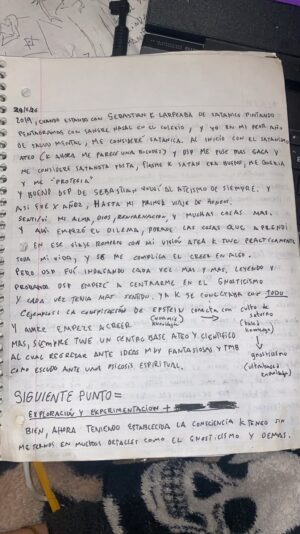 29/1/26
2019, CUANDO ESTANDO CON SEBASTIAN K LARPEABA DE SATANICO PINTANDO
PENTAGRAMAS CON SANGRE NASAL EN EL COLEGIO, Y YO EN MI PEOR AÑO
DE SALUD MENTAL, ME CONSIDERÉ SATANICA. AL INICIO CON EL SATANISMO
ATEO (K AHORA ME PARECE UNA) Y DSP ME PUSE MAS CAGA Y
ME CONSIDERE SATANISTA, K SATAN ERA BUENO, ME QUERIA
Y ME "PROTEGIA"
Y BUENO DSP DE SEBASTIAN VOLVÍ AL ATEISMO DE SIEMPRE. Y
ASI FUE X AÑOZ, HASTA MI PRIMER VIAJE DE HONGO.
SENTÍ/VI MI ALMA, DIOS, REENCARNACION, Y MUCHAS COSAS MAS.
Y AHI EMPEZÓ EL DILEMA, PORQUE LAS COSAS QUE APRENDÍ
EN ESE VIAJE ROMPIERON CON MI VISIÓN ATEA K TUVE PRACTICAMENTE
TODA MI VIDA, Y SE ME COMPLICA EL CREER EN ALGO.
PERO DSP FUI INDAGANDO CADA VEZ MAS Y MAS, LEYENDO Y
PROBANDO DSP EMPECÉ A CENTRARME EN EL GNOSTICISMO
Y CADA VEZ TENIA MAS SENTIDO. YA K SE CONECTABA CON TODO
(EJEMPLO: LA CONSPIRACIÓN DE EPSTEIN CONECTA CON CULTO DE SATURNO
Y ASI K EMPECÉ A CREER
MAS, SIEMPRE TUVE UN CENTRO BASE ATEO Y CIENTIFICO
AL CUAL REGRESAR ANTE IDEAS MUY FANTASIOSAS Y TMB
COMO ESCUDO ANTE UNA PSICOSIS ESPIRITUAL.
GNOSTICISMO
SIGUIENTE PUNTO =
EXPLORACIÓN Y EXPERIMENTACION +
BIEN, AHORA TENIENDO ESTABLECIDA LA CONSCIENCIA K TENGO SIN
METERNOS EN MUCHOS DETALLES COMO EL GNOSTICISMO Y DEMAS.